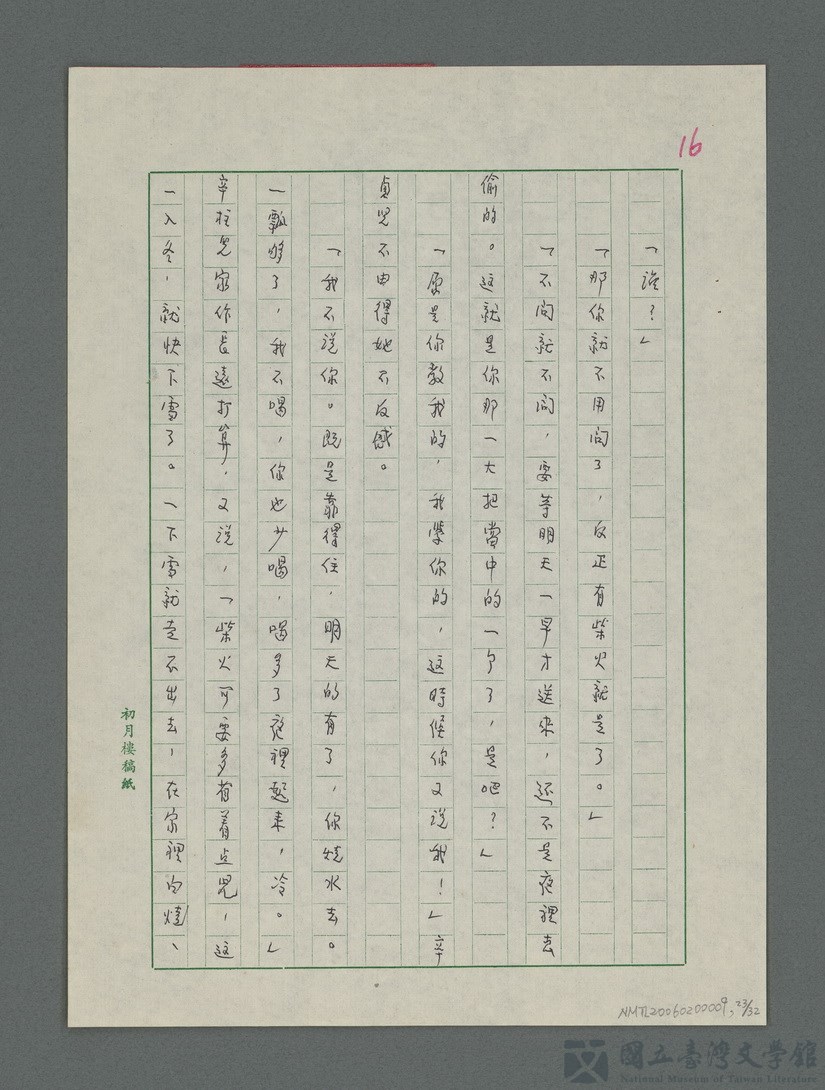 16
「誰？」
「那你就不用问了，反正有柴火就是了。」
「不问就不问，要等明天一早才送來，还不是夜裡去
偷的。这就是你那一大把當中的一个了，是吧？」
「原是你教我的，我學你的，这時候你又说我！」辛
貞兒不由得她不反感。
「我不说你。既是靠得住，明天的有了，你燒水去。
一瓢够了，我不喝，你也少喝，喝多了夜裡起来，冷。」
辛柱兒家作長遠打算，又说，「柴火可要多省着点兒，这
一入冬，就快下雪了。一下雪就走不出去，在家裡白燒、
初月樓稿紙
NMTL20060200009, 23/32
國立臺灣文學館
National Museum of Taiwan Literature